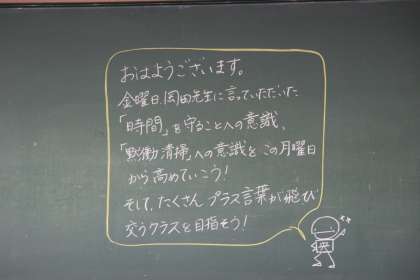 おはようございます。
金曜日、岡田先生に言っていただいた
「時間」を守ることへの意識、
「黙働清掃」への意識をこの月曜日
から高めていこう！
そして、たくさんプラス言葉が飛び
交うクラスを目指そう！